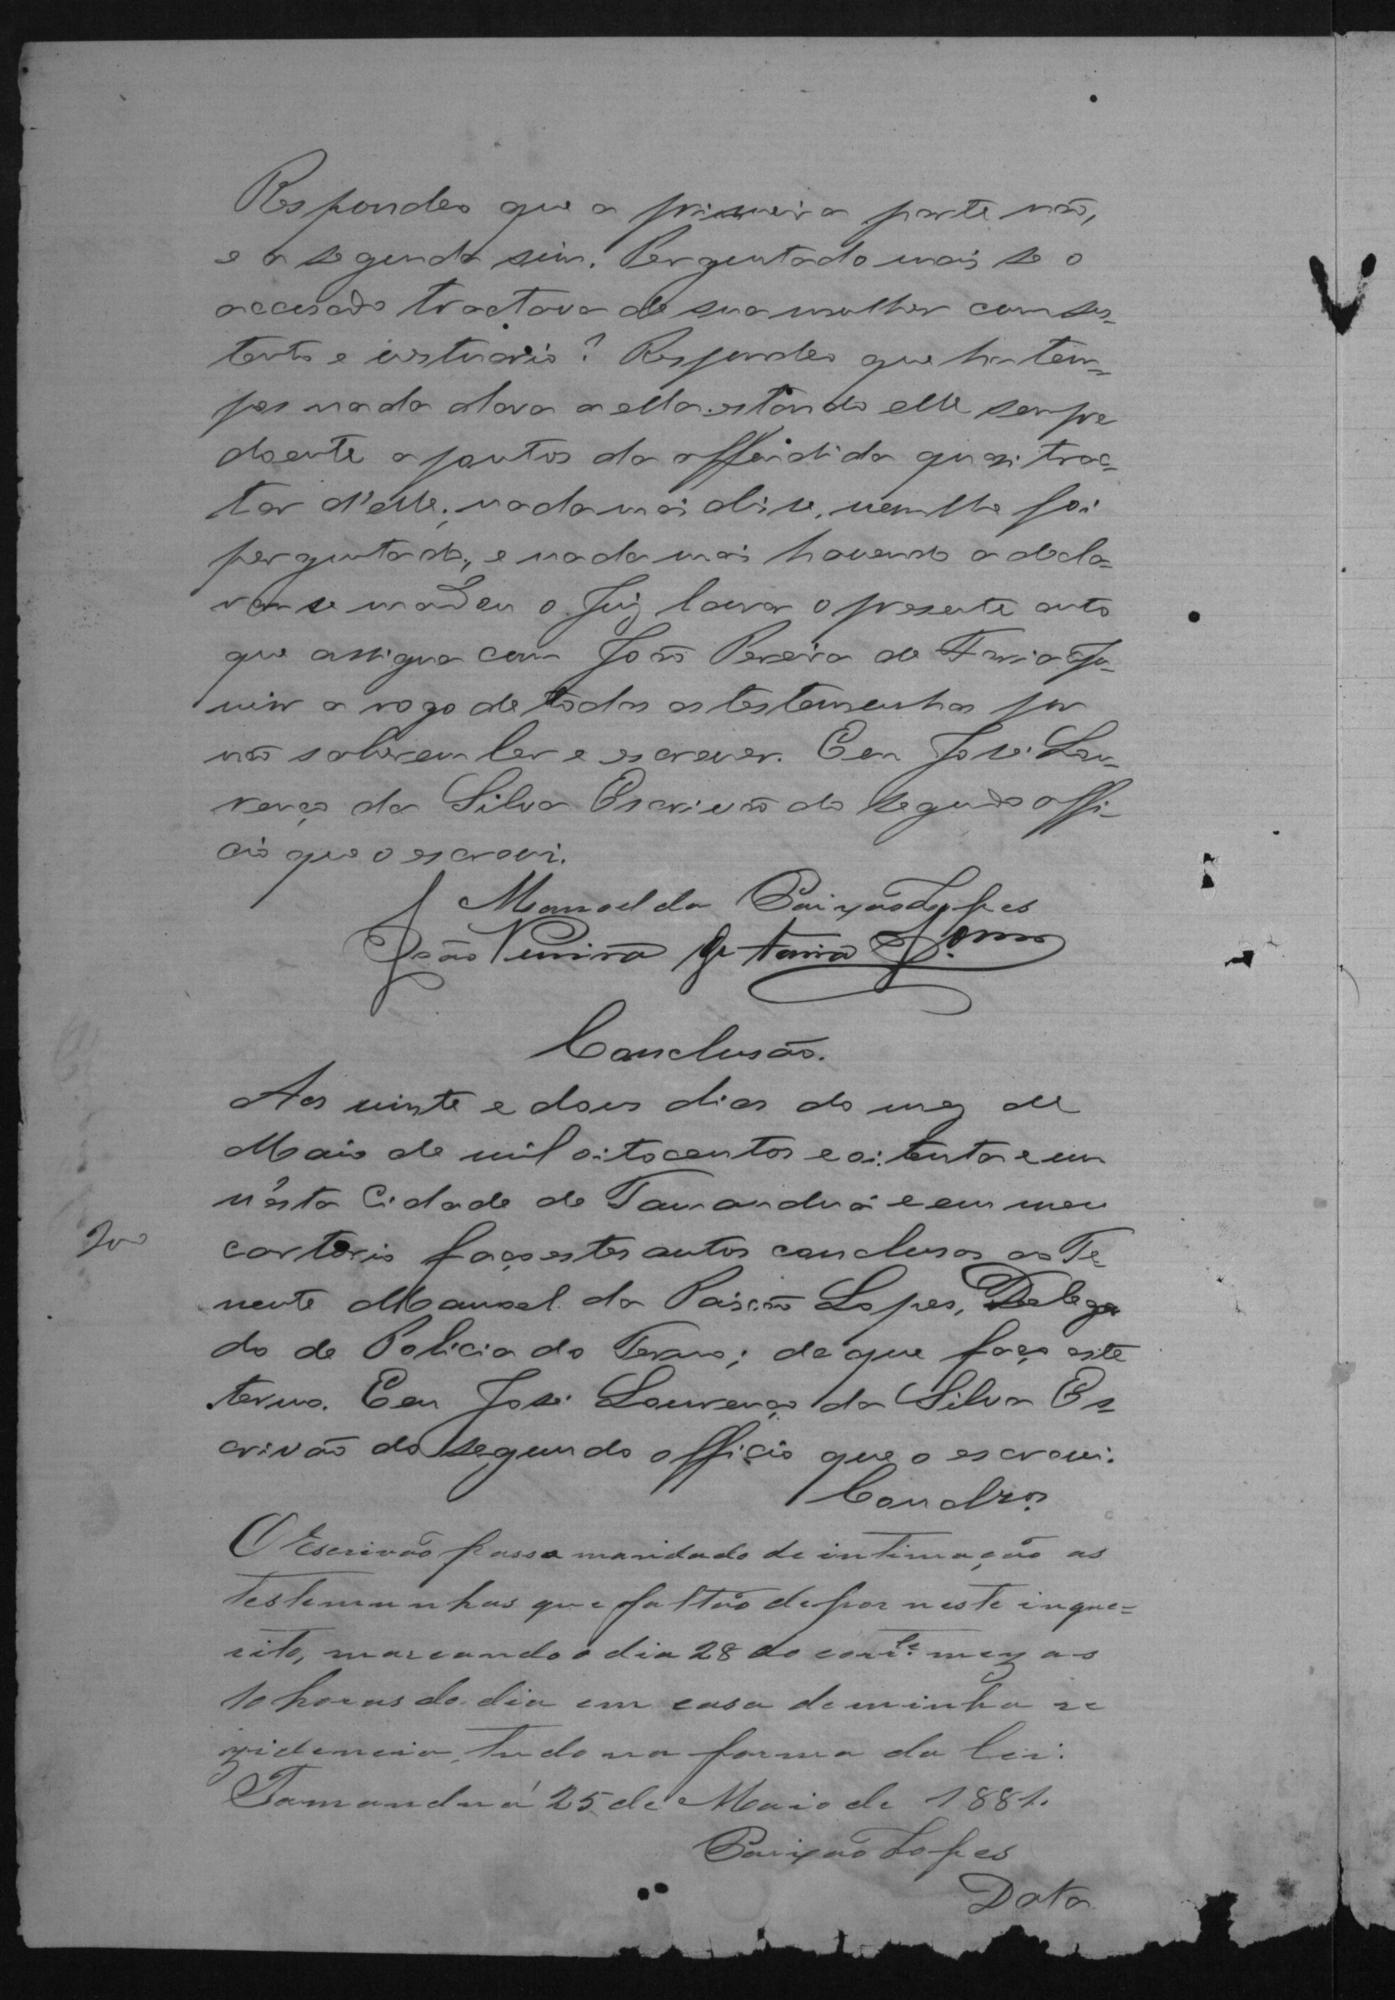 Respondeo que a primeira parte não,
e a segunda sim. Perguntado mais se o
accusado tractava de sua mulher com sus-
tento e vestuario? Respondeo que ha tem-
pos nada dava a ella estando elle sempre
doente a pontos da offendida quasi trac-
tar d'elle; nada mais disse, nem lhe foi
perguntado, e nada mais havendo a decla-
rar se mandou o Juiz lavrar o presente auto
que assigna com João Pereira de Faria Ju-
nior a rogo de todas as testemunhas por
não saberem ler e escrever. Eeu José Lou-
renço da Silva Escrivão do segundo offi-
cio que o escrevi.
Manoel da Paixão Lopes
João Pereira de Faria Jor
Conclusão.
Aos vinte e dous dias do mez de
Maio de mil oitocentos e oitenta e um
n'esta Cidade de Tamanduá e em meu
200
cartorio faço estes autos conclusos ao Te-
nente Manoel da Paixão Lopes, Delega
do de Policia do Termo; de que faço este
termo. Eeu José Lourenço da Silva Es-
crivão do segundo officio que o escrevi.
Conclzos
O Escrivão passe mandado de intimação as
testemunhas que faltão depor neste inque-
rito, marcando o dia 28 do corte. mez as
10 horas do dia em casa de minha re
zidencia, tudo na forma da lei.
Tamanduá 25 de Maio de 1881.
Paixão Lopes
Data